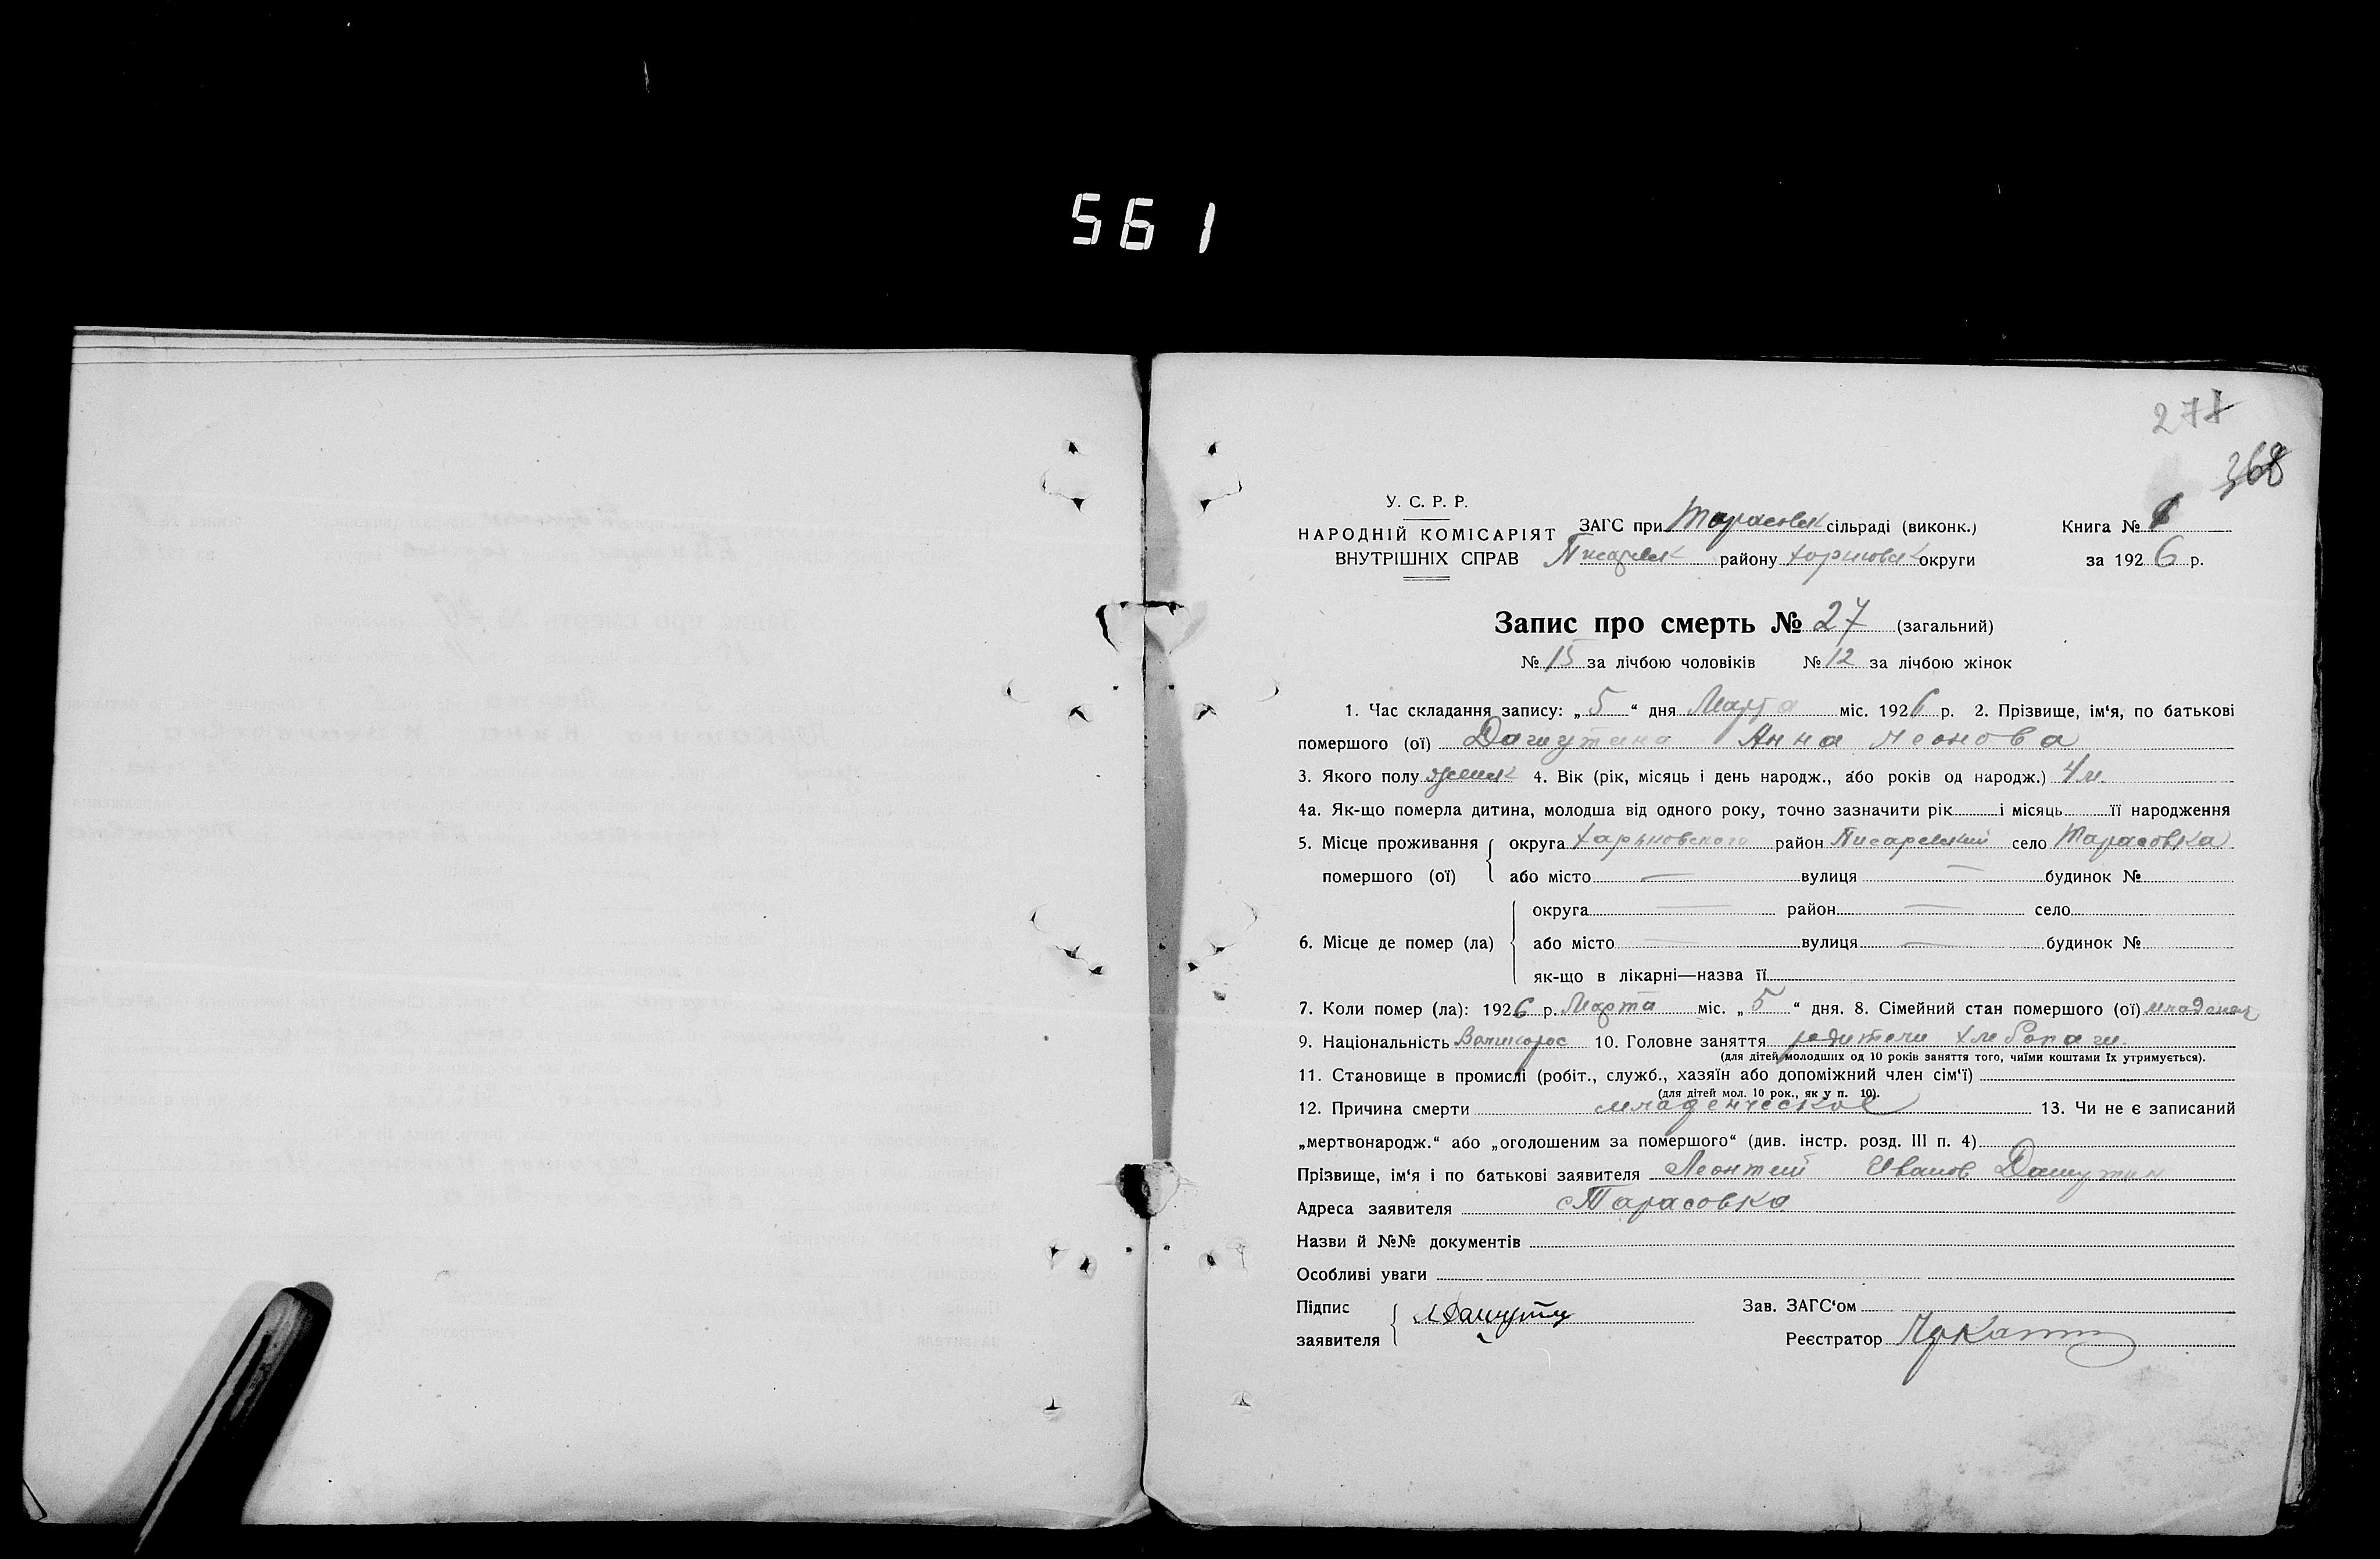 561
278
368
У. С. Р. Р.
НАРОДНІЙ КОМІСАРІЯТ
ВНУТРІШНІХ СПРАВ
ЗАГС при Тарасовск сільраді (виконк.)
Писарвск району Харковск округи
Книга №
за 1926 р.
Запис про смерть № 27 (загальний)
№ 15 за лічбою чоловіків № 12 за лічбою жінок
1. Час складання запису: „5“ дня Марта міс. 1926 р. 2. Прізвище, ім‘я, по батькові
помершого (ої) Дашутина Анна Леонова
3. Якого полу женск 4. Вік (рік, місяць і день народж., або років од народж.) 4 м
4а. Як-що померла дитина, молодша від одного року, точно зазначити рік і місяць її народження
5. Місце проживання помершого (ої) округа Харьковского район Писаревский село Тарасовка
або місто — вулиця — будинок №
6. Місце де помер (ла) округа — район — село
або місто — вулиця — будинок №
як-що в лікарні—назва її
7. Коли помер (ла): 1926 р. Марта міс. „5“ дня. 8. Сімейний стан помершого (ої) младенец
9. Національність Великорос 10. Головне заняття родители хлебопаш.
(для дітей молодших од 10 років заняття того, чиїми коштами їх утримується).
11. Становище в промислі (робіт., служб., хазяїн або допоміжний член сім‘ї)
(для дітей мол. 10 рок., як у п. 10).
12. Причина смерти младенческое 13. Чи не є записаний
„мертвонародж.“ або „оголошеним за помершого“ (див. інстр. розд. III п. 4)
Прізвище, ім‘я і по батькові заявителя Леонтий Иванов Дашутин
Адреса заявителя с Тарасовка
Назви й №№ документів
Особливі уваги
Підпис заявителя Л Дашути
Зав. ЗАГС‘ом
Реєстратор